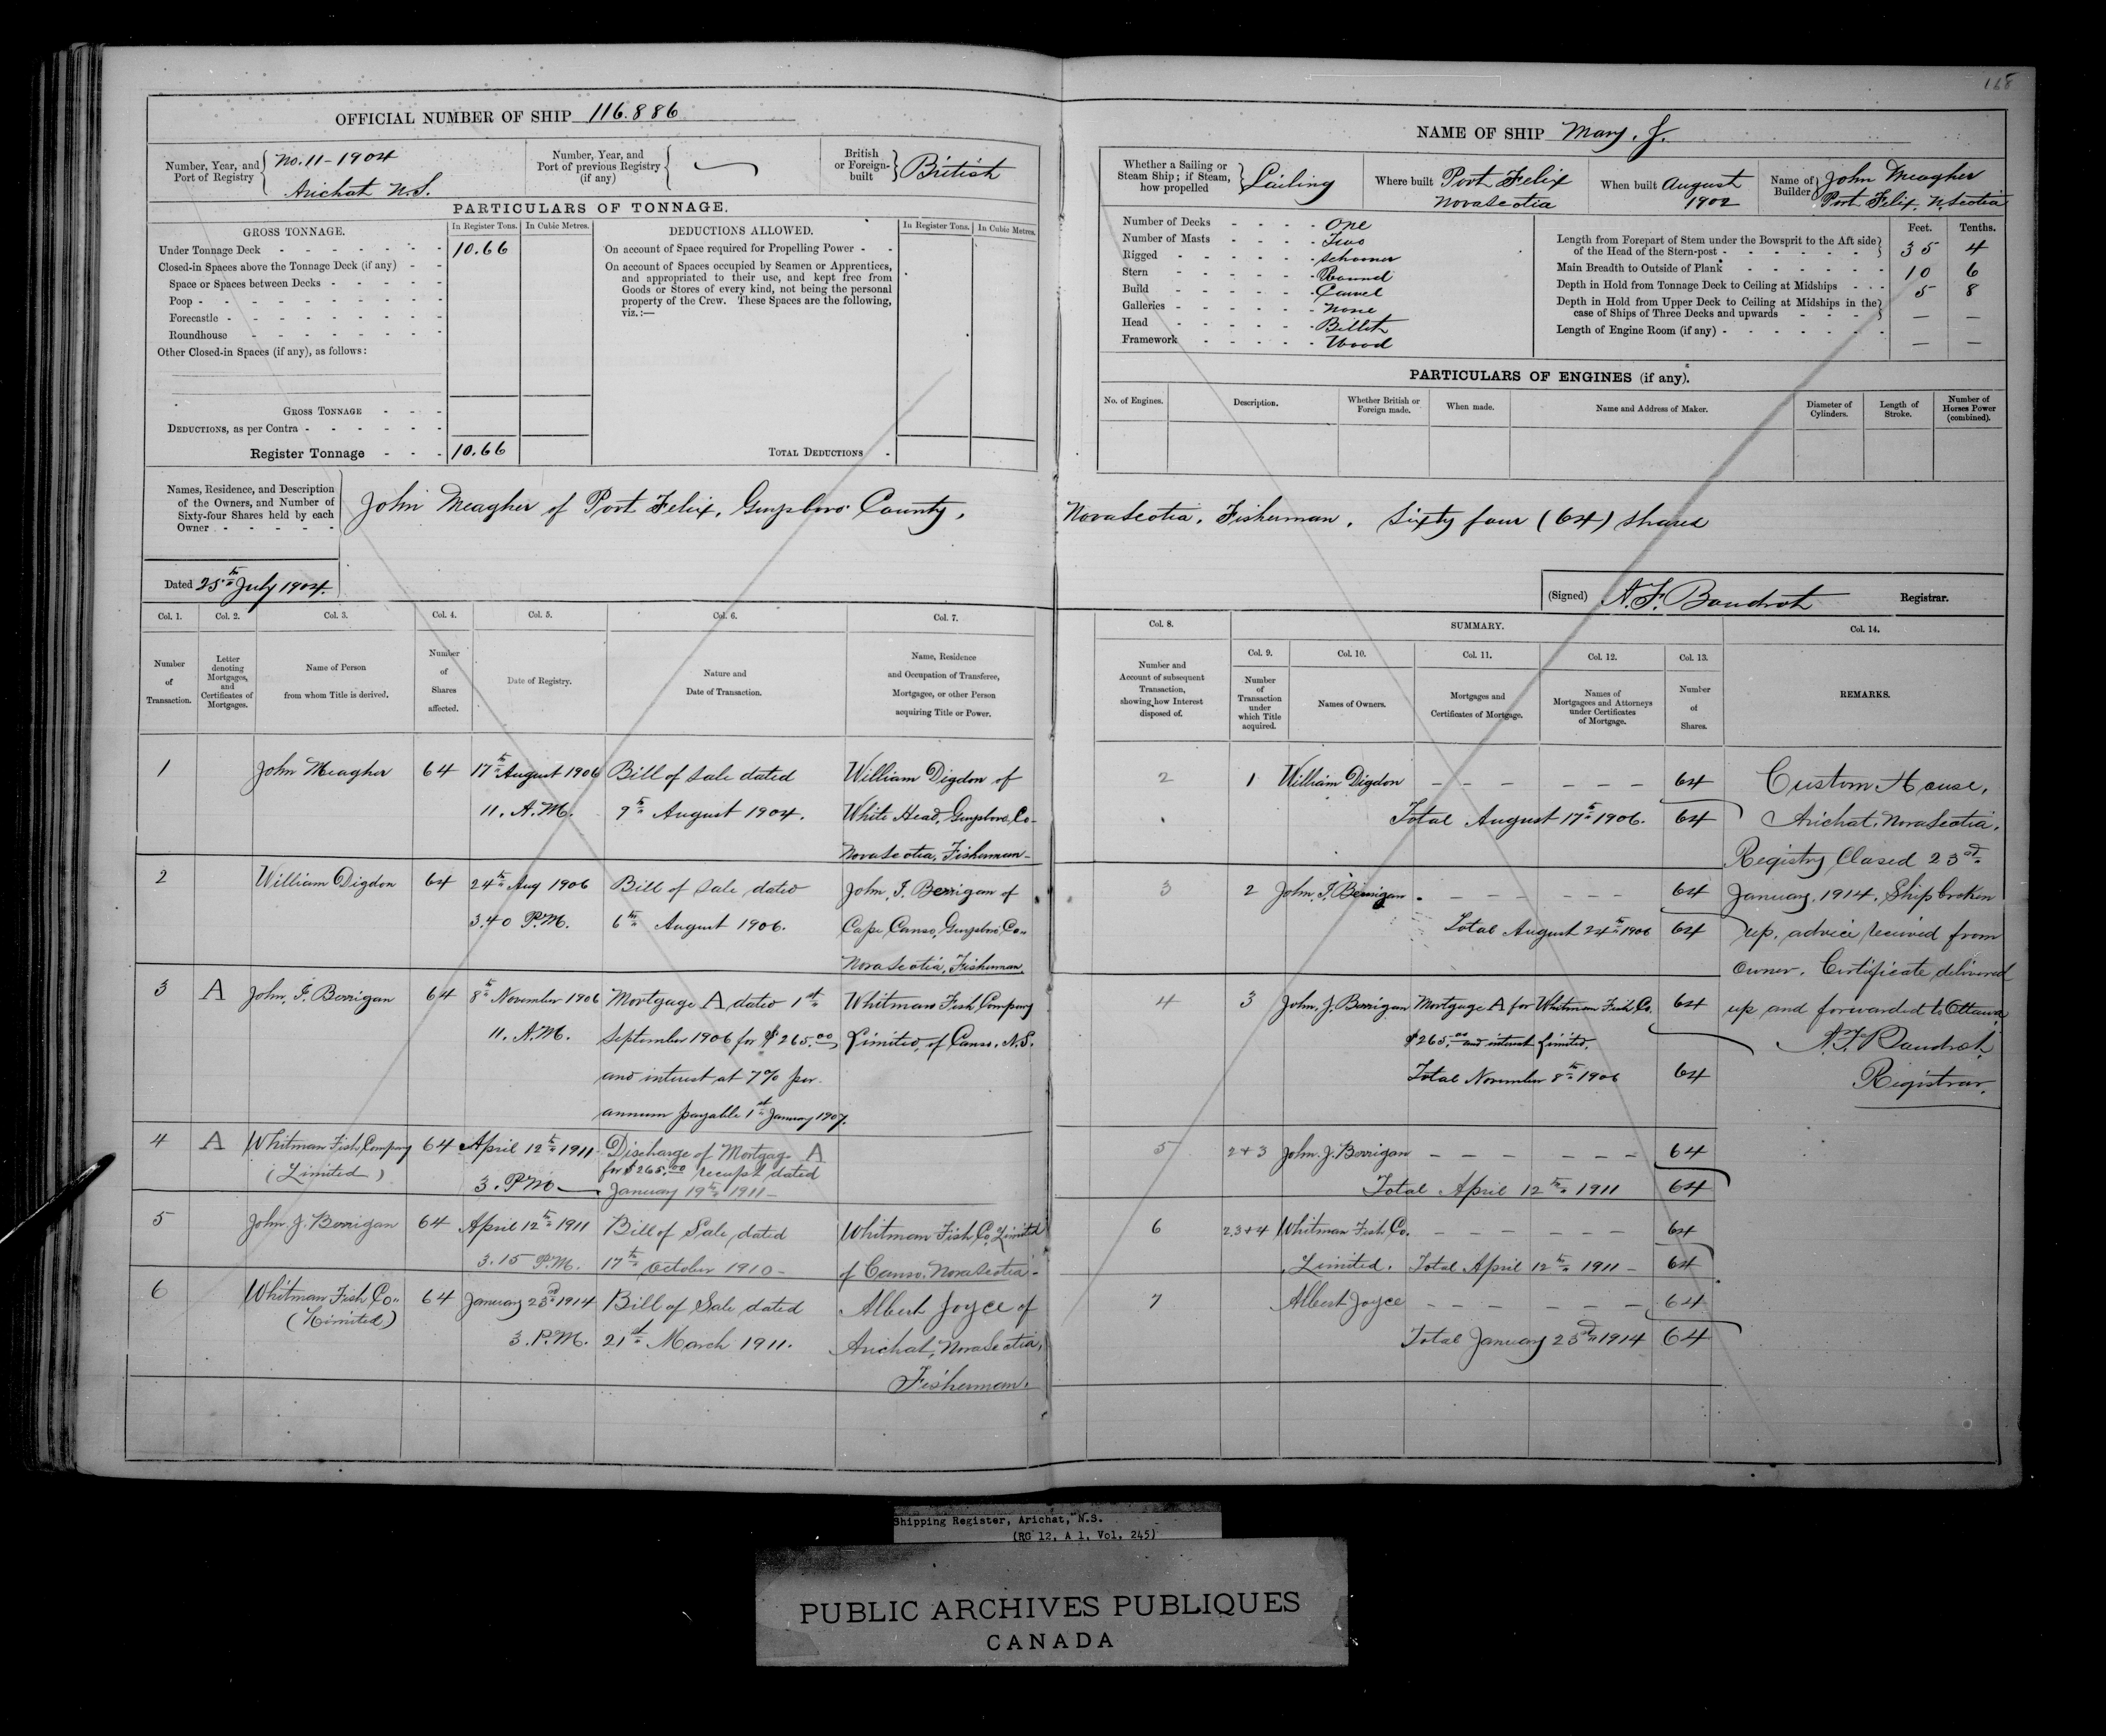 168
OFFICIAL NUMBER OF SHIP 116.886
Number, Year, and Port of Registry No. 11 - 1904
Arichat N.S.
Number, Year, and Port of previous Registry (if any)
British or Foreign-built British
PARTICULARS OF TONNAGE.
GROSS TONNAGE.
In Register Tons.
In Cubic Metres.
DEDUCTIONS ALLOWED.
In Register Tons.
In Cubic Metres.
Under Tonnage Deck 10.66
Closed-in Spaces above the Tonnage Deck (if any)
Space or Spaces between Decks
Poop
Forecastle
Roundhouse
Other Closed-in Spaces (if any), as follows:
GROSS TONNAGE
DEDUCTIONS, as per Contra
Register Tonnage 10.66
On account of Space required for Propelling Power
On account of Spaces occupied by Seamen or Apprentices,
and appropriated to their use, and kept free from
Goods or Stores of every kind, not being the personal
property of the Crew. These Spaces are the following,
viz.:—
TOTAL DEDUCTIONS
NAME OF SHIP Mary. J.
Whether a Sailing or Steam Ship; if Steam, how propelled Sailing
Where built Port Felix
Nova Scotia
When built August
1902
Name of Builder John Meagher
Port Felix. N. Scotia
Number of Decks One
Number of Masts Two
Rigged Schooner
Stern Round
Build Carvel
Galleries None
Head Billet
Framework Wood
Feet. Tenths.
Length from Forepart of Stem under the Bowsprit to the Aft side
of the Head of the Stern-post 35 4
Main Breadth to Outside of Plank 10 6
Depth in Hold from Tonnage Deck to Ceiling at Midships 5 8
Depth in Hold from Upper Deck to Ceiling at Midships in the
case of Ships of Three Decks and upwards — —
Length of Engine Room (if any) — —
PARTICULARS OF ENGINES (if any).
No. of Engines.
Description.
Whether British or Foreign made.
When made.
Name and Address of Maker.
Diameter of Cylinders.
Length of Stroke.
Number of Horses Power (combined).
Names, Residence, and Description
of the Owners, and Number of
Sixty-four Shares held by each
Owner
John Meagher of Port Felix, Guysboro County, Nova Scotia, Fisherman. Sixty four (64) shares
Dated 25th July 1904.
(Signed) A. F. Boudrot Registrar.
Col. 1.
Col. 2.
Col. 3.
Col. 4.
Col. 5.
Col. 6.
Col. 7.
Number of Transaction.
Letter denoting Mortgages, and Certificates of Mortgages.
Name of Person from whom Title is derived.
Number of Shares affected.
Date of Registry.
Nature and Date of Transaction.
Name, Residence and Occupation of Transferee, Mortgagee, or other Person acquiring Title or Power.
Col. 8.
SUMMARY.
Col. 14.
Col. 9.
Col. 10.
Col. 11.
Col. 12.
Col. 13.
Number and Account of subsequent Transaction, showing how Interest disposed of.
Number of Transaction under which Title acquired.
Names of Owners.
Mortgages and Certificates of Mortgage.
Names of Mortgagees and Attorneys under Certificates of Mortgage.
Number of Shares.
REMARKS.
1 John Meagher 64 17th August 1906 Bill of Sale dated William Digdon of
11. A.M. 9th August 1904. White Head, Guysboro Co-
Nova Scotia, Fisherman-
2 William Digdon 64 24th Aug 1906 Bill of Sale dated John. J. Berrigan of
3.40 P.M. 6th August 1906. Cape Canso, Guysboro Co-
Nova Scotia, Fisherman
3 A John. J. Berrigan 64 8th November 1906 Mortgage A dated 1st Whitman Fish Company
11. A.M. September 1906 for $265.00 Limited, of Canso. N.S.
and interest at 7% per
annum payable 1st January 1907.
4 A Whitman Fish Company 64 April 12th 1911 Discharge of Mortgage A
(Limited) for $265.00 receipt dated
3. P.M. January 19th 1911-
5 John J. Berrigan 64 April 12th 1911 Bill of Sale, dated Whitman Fish Co. Limited
3.15 P.M. 17th October 1910- of Canso. Nova Scotia-
6 Whitman Fish Co.. 64 January 23rd 1914 Bill of Sale dated Albert Joyce of
(Limited) 3. P.M. 21st March 1911. Arichat, Nova Scotia,
Fisherman.
2 1 William Digdon 64
Total August 17th 1906. 64
3 2 John. J. Berrigan 64
Total August 24th 1906 64
4 3 John, J. Berrigan Mortgage A for Whitman Fish Co. 64
$265.00 and interest Limited.
Total November 8th 1906 64
5 2+3 John. J. Berrigan 64
Total April 12th 1911 64
6 2.3+4 Whitman Fish Co. 64
Limited. Total April 12th 1911- 64
7 Albert Joyce 64
Total January 23rd 1914 64
Custom House,
Arichat, Nova Scotia.
Registry Closed 23rd
January, 1914. Ship broken
up, advice received from
Owner. Certificate delivered
up and forwarded to Ottawa
A. F. Boudrot
Registrar.
Shipping Register, Arichat, N.S.
(RG 12, A 1, Vol. 245)
PUBLIC ARCHIVES PUBLIQUES
CANADA